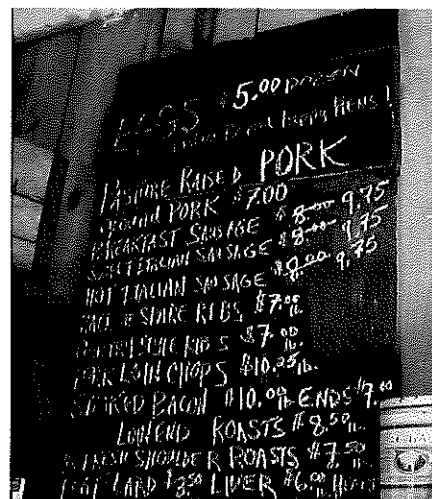 EGGS $5.00 DOZEN
HENS!
PASTURE RAISED PORK
GROUND PORK $7.00
BREAKFAST SAUSAGE $8.00 9.75
SWEET ITALIAN SAUSAGE $8.00 9.75
HOT ITALIAN SAUSAGE $8.00 9.75
RACK OF SPARE RIBS $7.00 lb.
COUNTRY STYLE RIBS $7.00 lb.
PORK LOIN CHOPS $10.25 lb.
SMOKED BACON $10.00 lb. ENDS $7.00
LOIN END ROASTS $8.50 lb.
FRESH SHOULDER ROASTS $7.50
LEAF LARD $3.50 LIVER $6.00